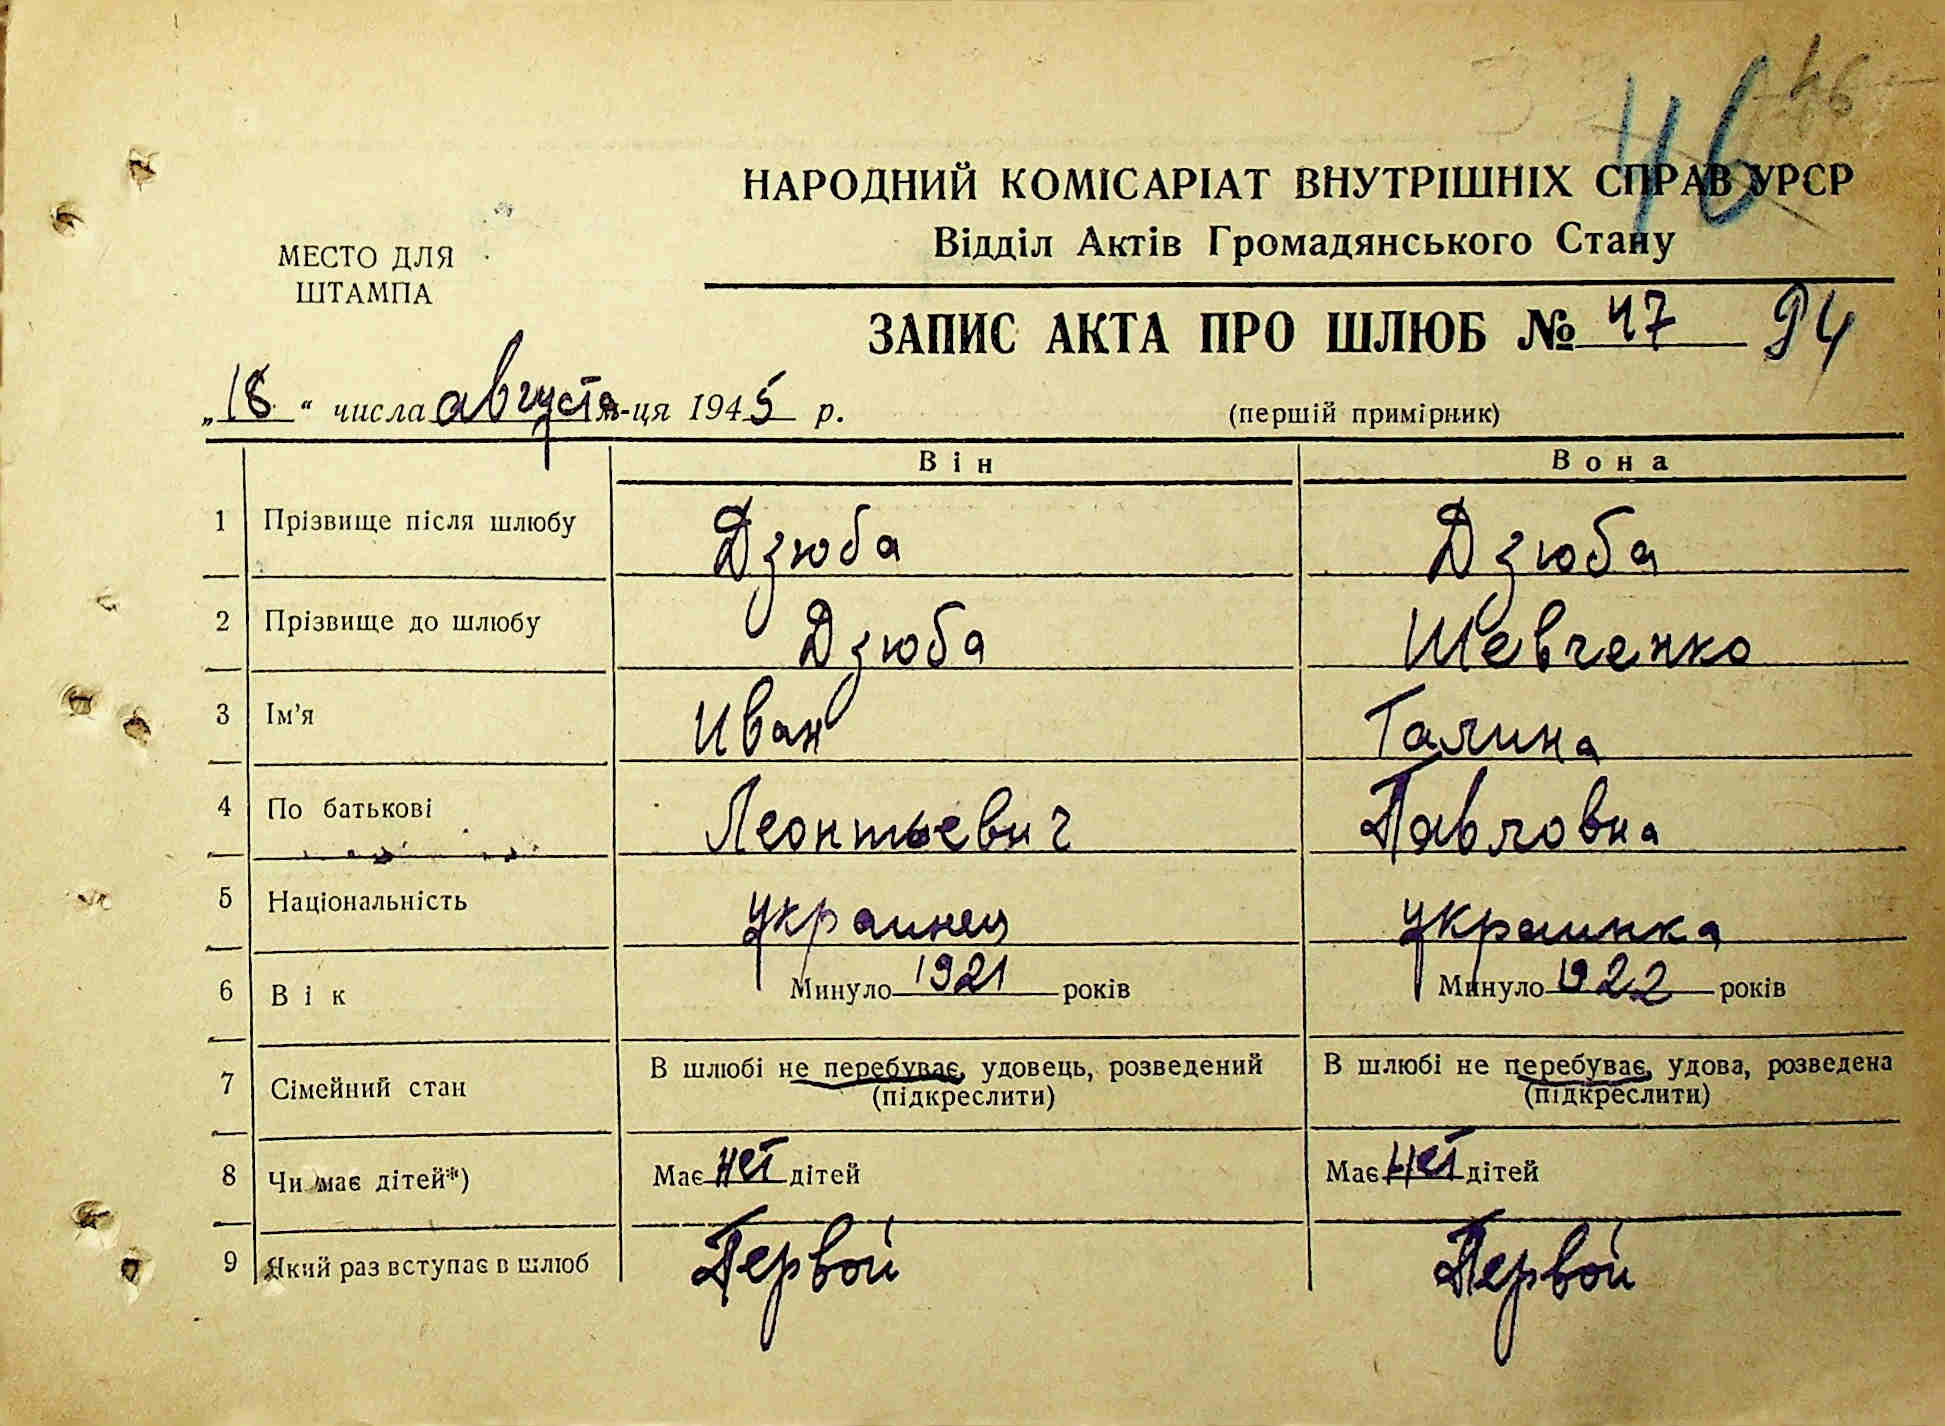 46
46
НАРОДНИЙ КОМІСАРІАТ ВНУТРІШНІХ СПРАВ УРСР
Відділ Актів Громадянського Стану
МЕСТО ДЛЯ
ШТАМПА
ЗАПИС АКТА ПРО ШЛЮБ № 47 94
„18“ числа августа м-ця 1945 р. (першій примірник)
Він Вона
1 Прізвище після шлюбу Дзюба Дзюба
2 Прізвище до шлюбу Дзюба Шевченко
3 Ім'я Иван Галина
4 По батькові Леонтьевич Павловна
5 Національність украинец украинка
6 Вік Минуло 1921 років Минуло 1922 років
7 Сімейний стан В шлюбі не перебуває, удовець, розведений (підкреслити) В шлюбі не перебуває, удова, розведена (підкреслити)
8 Чи має дітей*) Має нет дітей Має нет дітей
9 Який раз вступає в шлюб Первой Первой